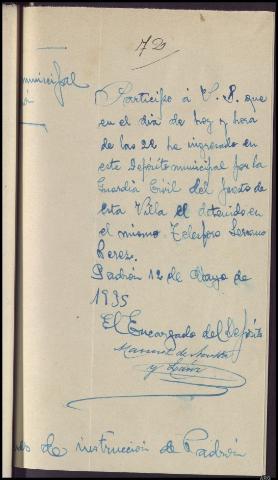 municipal
Participo á V.S. que
en el dia de hoy y hora
de las 22 ha ingresado en
este Depósito municipal por la
Guardia Civil del puesto de
esta Villa el detenido en
el mismo Telesforo Serrano
Perez.
Padrón 12 de Mayo de
1935
El Encargado del Depósito
Manuel de
y
de instrucción de Padrón